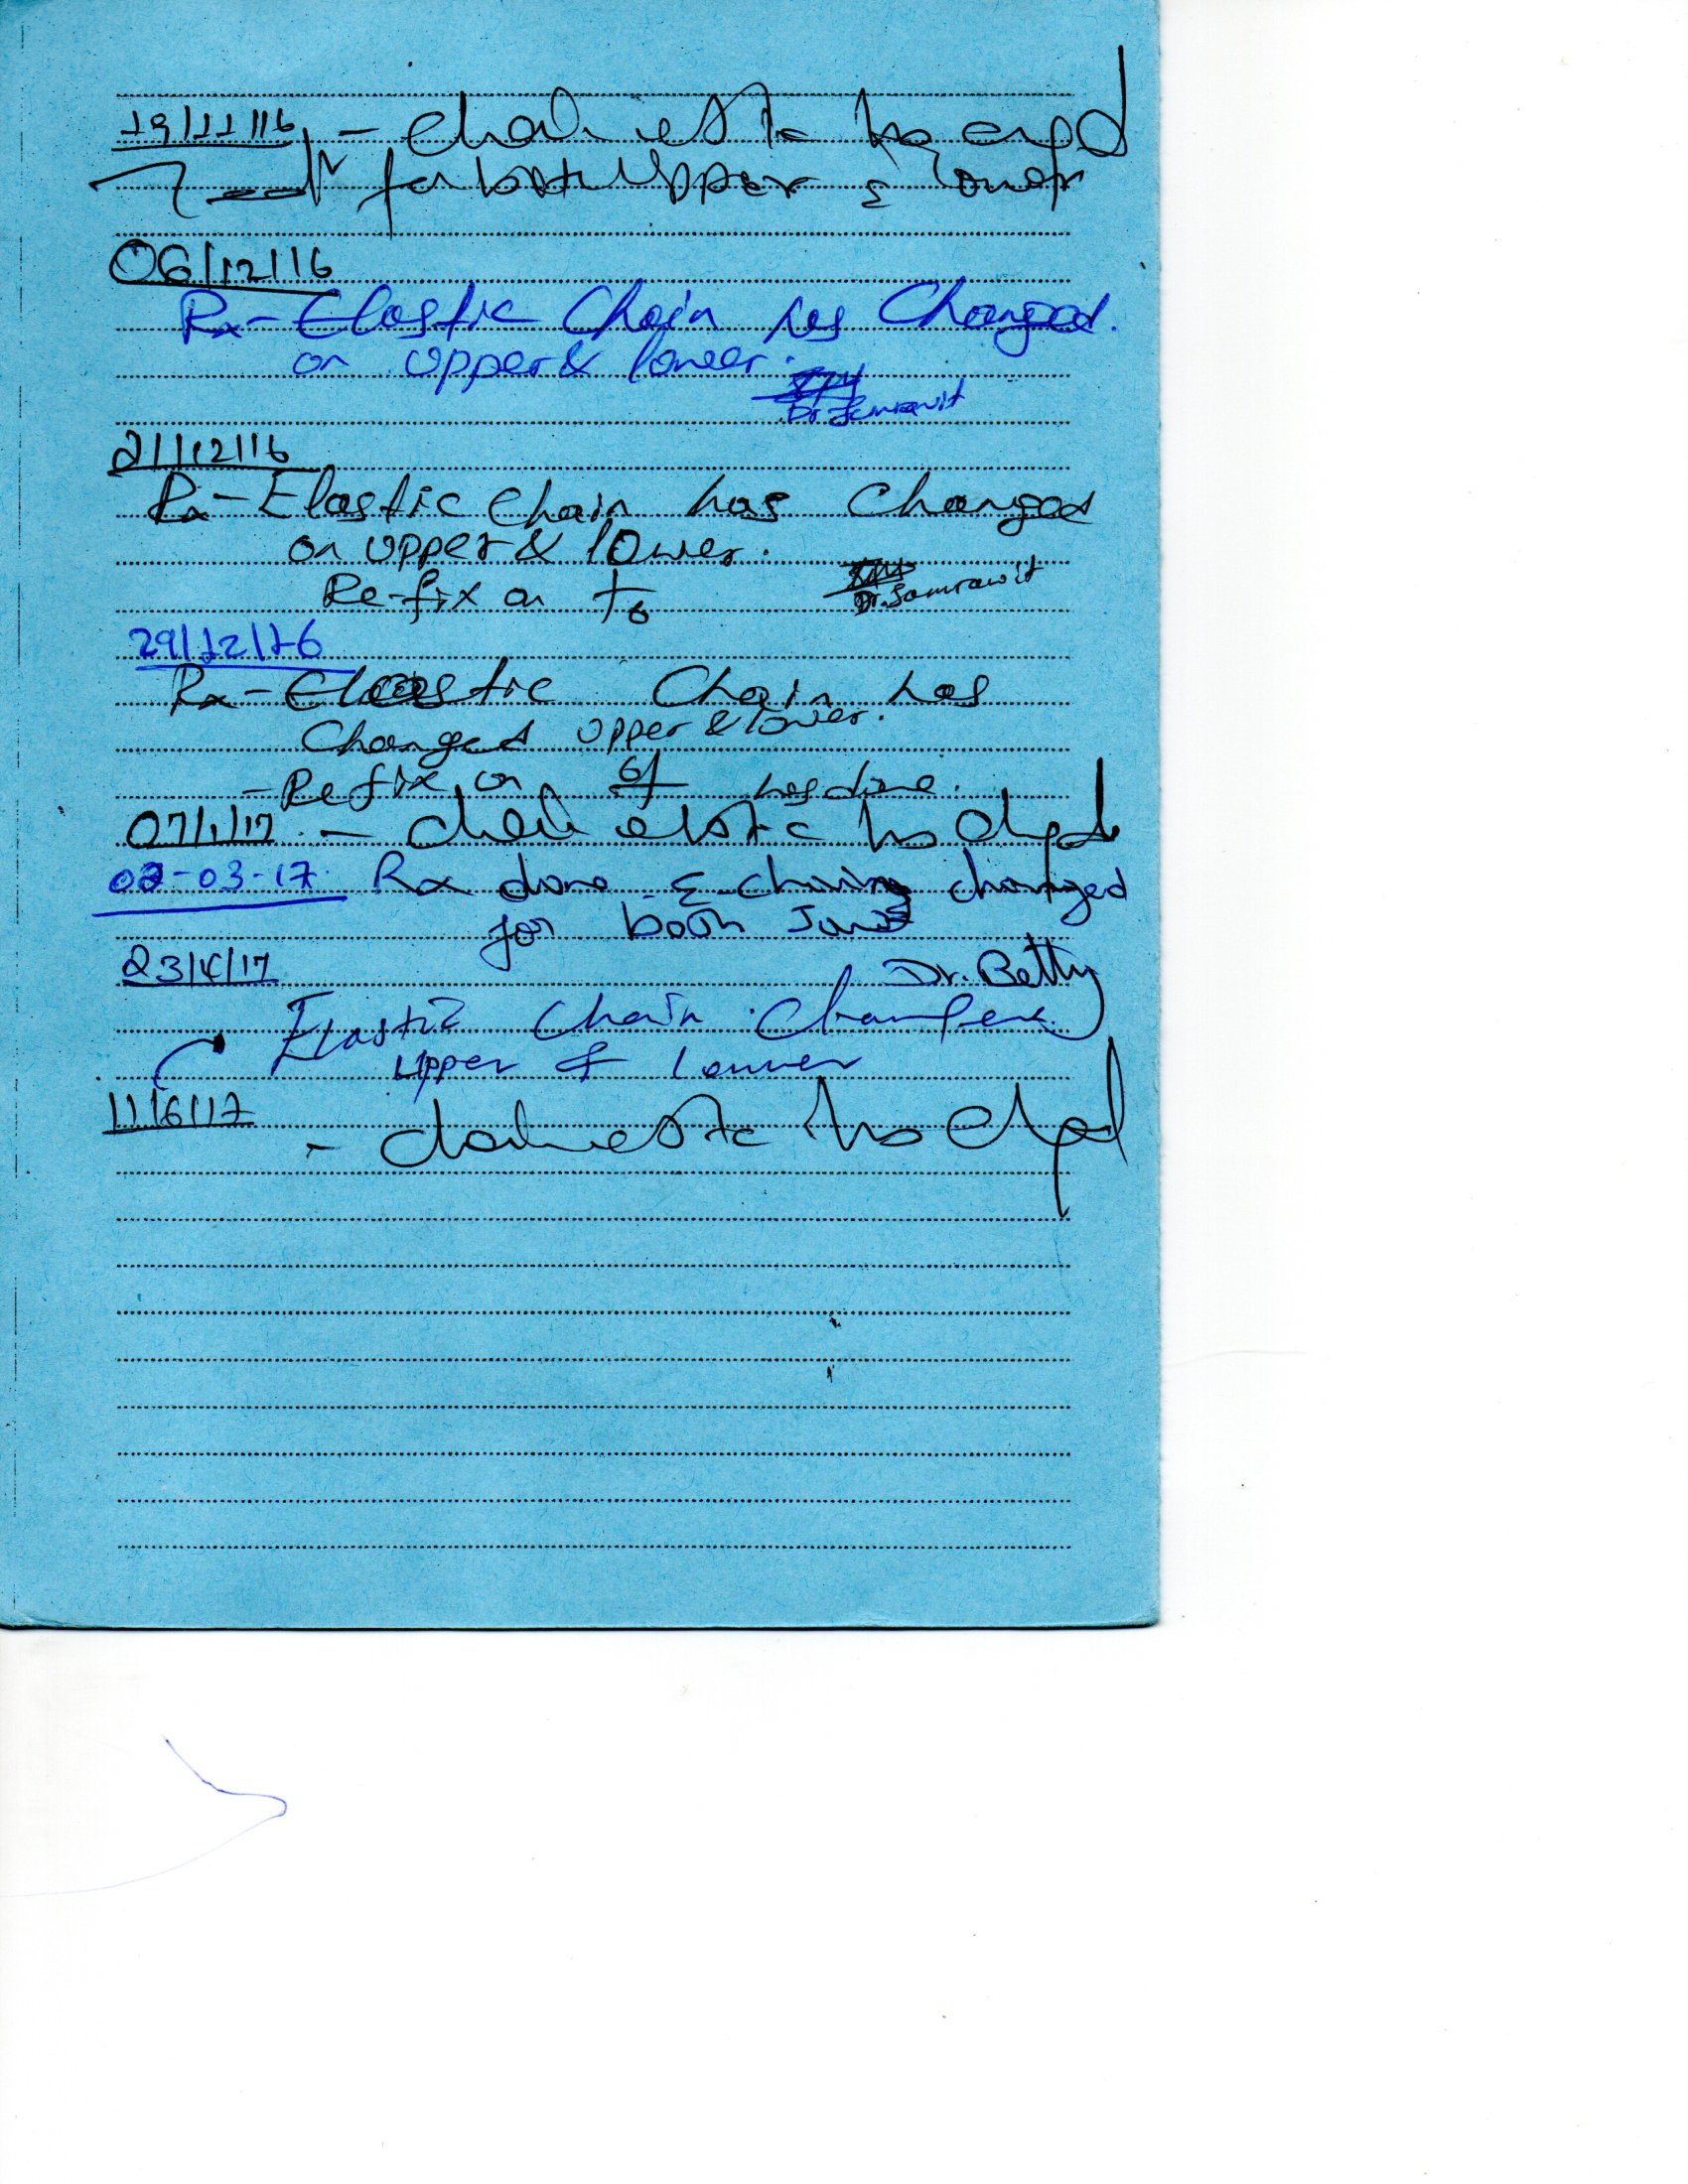 19/11/16 - chain elastic has
for both upper & lower
06/12/16
Rx- Elastic Chain has Changed.
on upper & lower.
Dr. Samrawit
21/12/16
Rx- Elastic chain has Changed
on upper & lower.
Re-fix on 6
Dr. Samrawit
29/12/16
Rx- Elastic Chain has
Changed upper & lower.
- Refix on 6 has done.
07/1/17 - chain elastic has
02-03-17 Rx done & chaining changed
for both Jaws
23/4/17 Dr. Betty
Elastic Chain
Upper & Lower
11/6/17
- chain elastic has